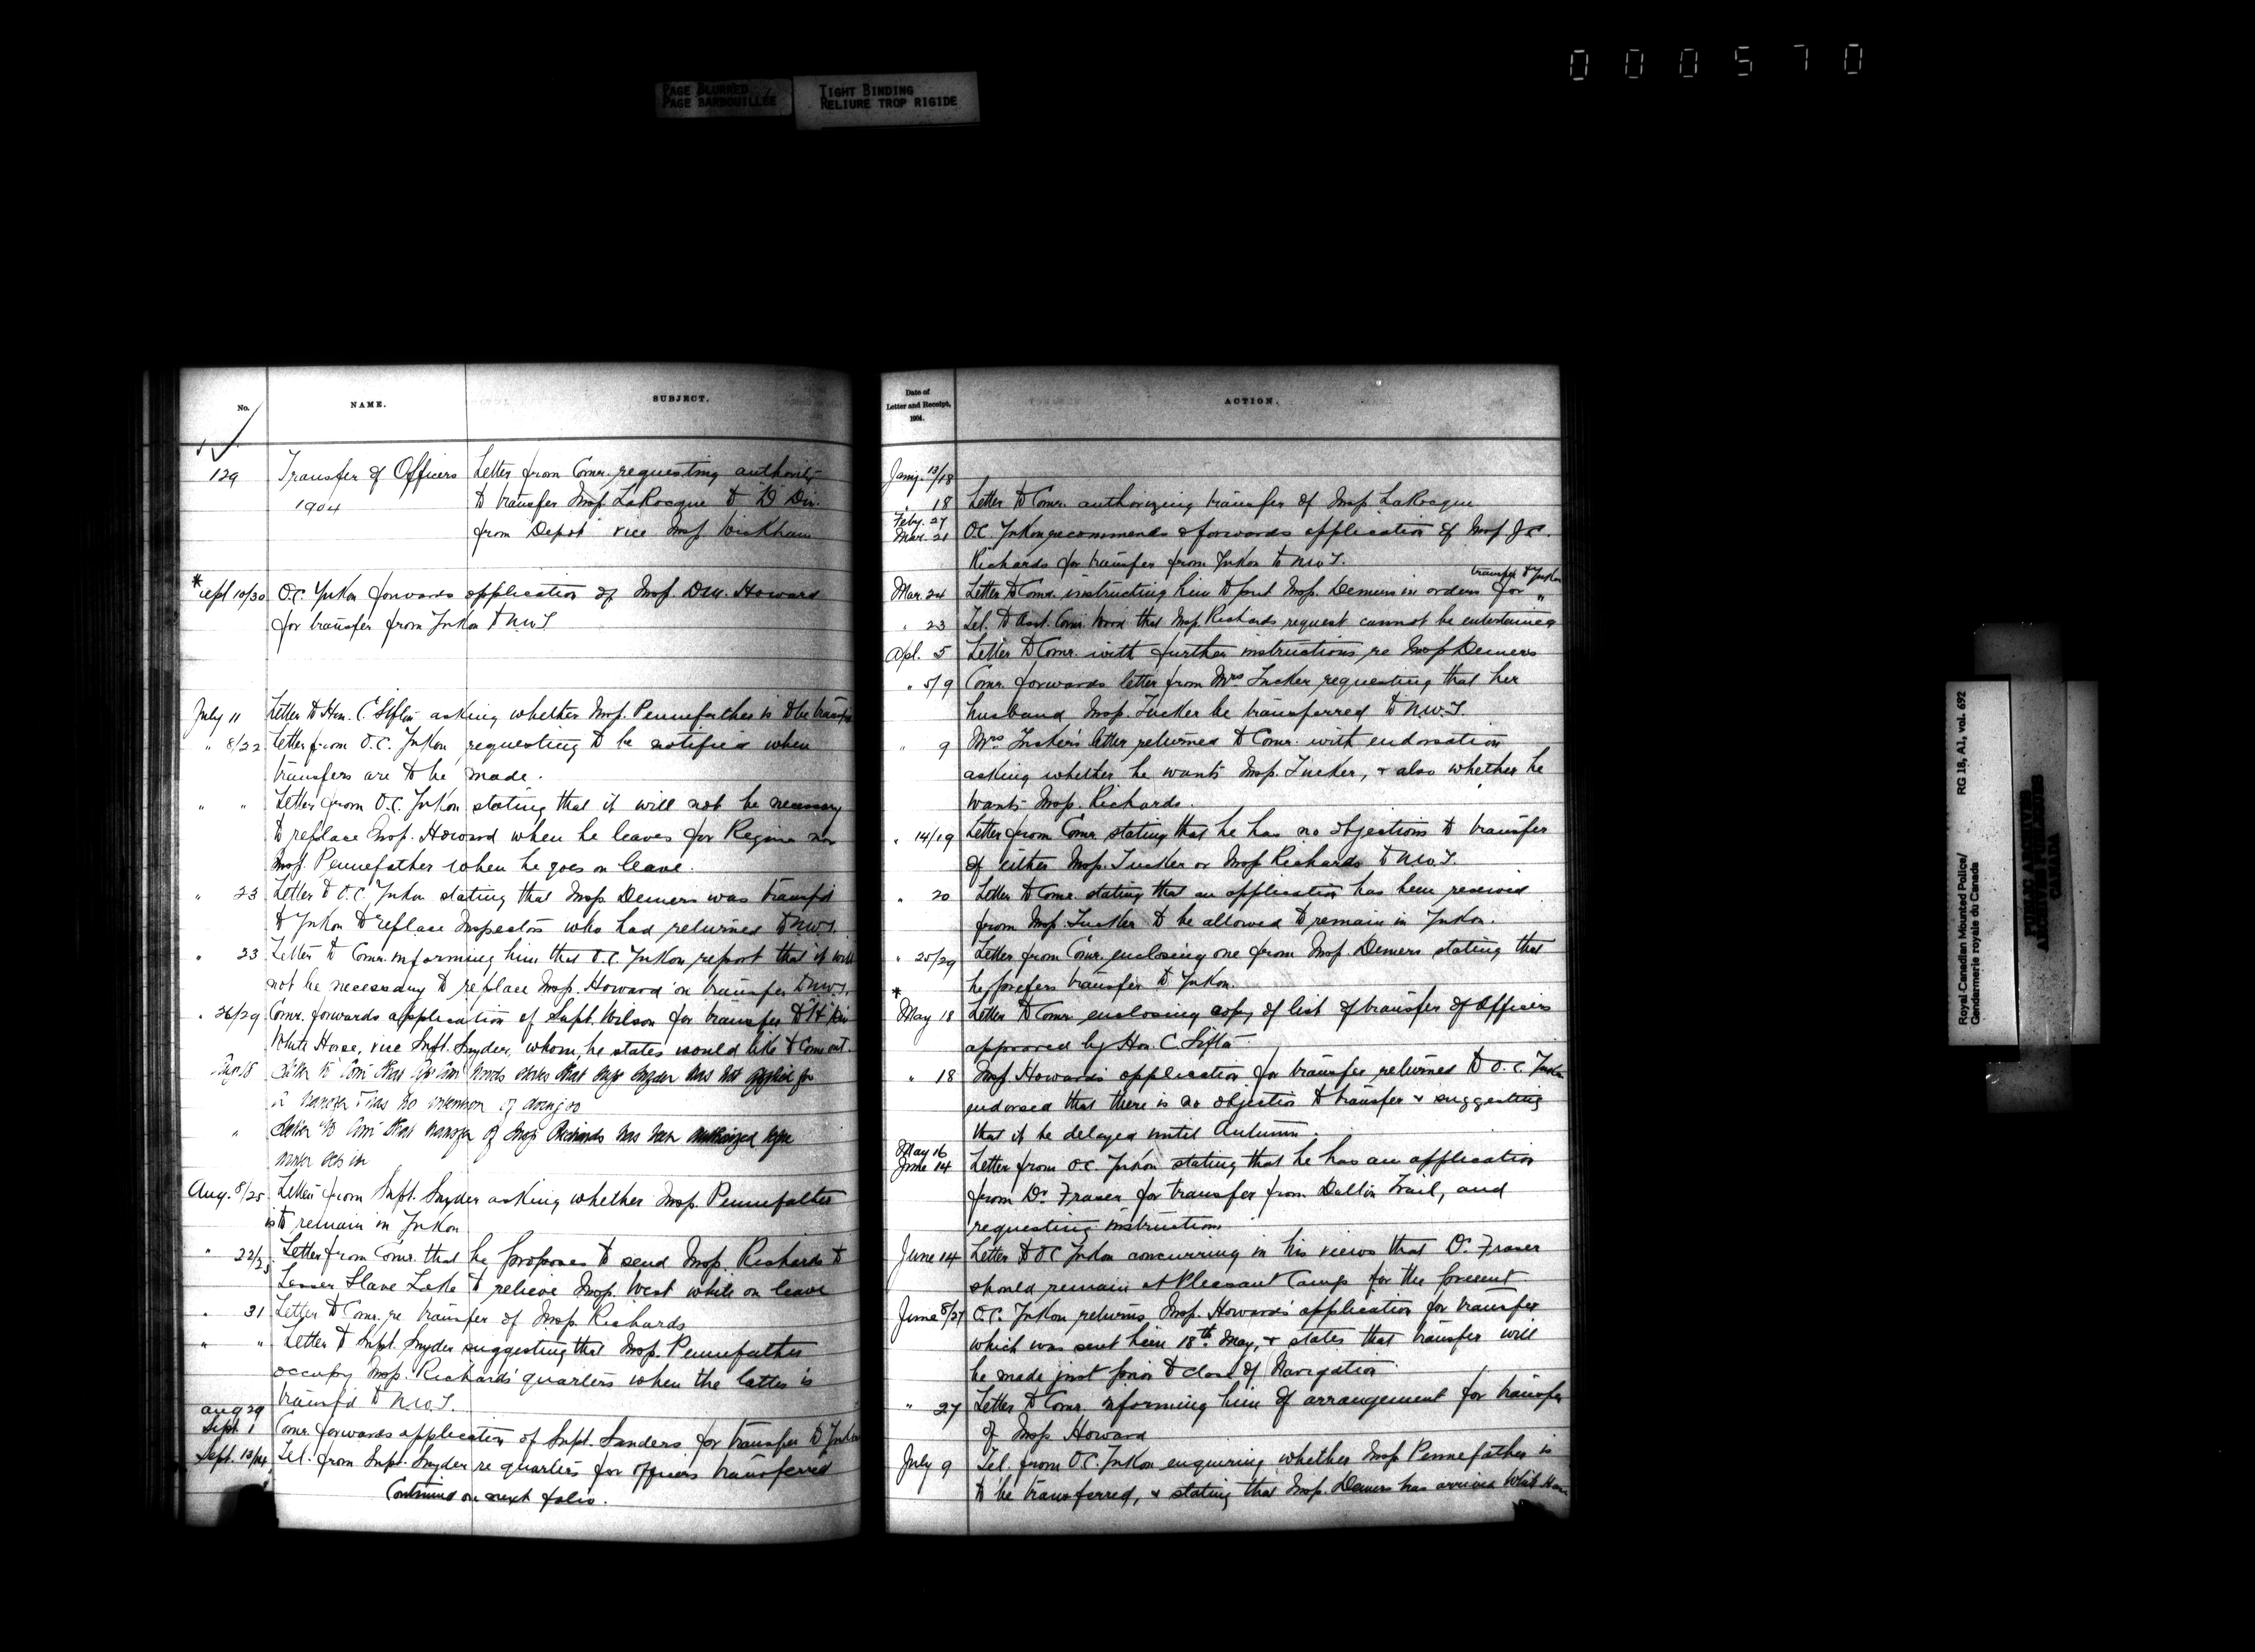 000570
PAGE BLURRED
PAGE BARBOUILLÉE
TIGHT BINDING
RELIURE TROP RIGIDE
No.
NAME.
SUBJECT.
129
Transfer of Officers
1904
Letter from Comr. requesting authority
to transfer Insp. LaRocque to "D" Div.
from Depot vice Insp Wickham
* Sept 10/30 O.C. Yukon forwards application of Insp. D.M. Howard
for transfer from Yukon to N.W.T
July 11 Letter to Hon. C. Sifton asking whether Insp. Pennefather is to be transfd
" 8/22 Letter from O.C. Yukon requesting to be notified when
transfers are to be made.
" " Letter from O.C. Yukon stating that it will not be necessary
to replace Insp. Howard when he leaves for Regina nor
Insp. Pennefather when he goes on leave.
" 23 Letter to O.C. Yukon stating that Insp Demers was transfd
to Yukon to replace Inspectors who had returned to N.W.T.
" 23 Letter to Comr. informing him that O.C. Yukon report that it will
not be necessary to replace Insp. Howard on transfer to N.W.T.
" 26/29 Comr. forwards application of Supt. Wilson for transfer to "H" Div
White Horse, vice Supt. Snyder, whom, he states would like to come out.
Aug 8 Letter to Comr that Ast Comr Wood states that Supt Snyder has not applied for
a transfer & has no intention of doing so
" Letter to Comr that transfer of Insp Richards has been authorized before
winter sets in
Aug. 8/25 Letter from Supt. Snyder asking whether Insp. Pennefather
is to remain in Yukon
" 22/25 Letter from Comr. that he proposes to send Insp. Richards to
Lesser Slave Lake to relieve Insp. West while on leave
" 31 Letter to Comr. re transfer of Insp. Richards
" " Letter to Supt. Snyder suggesting that Insp. Pennefather
occupy Insp. Richards' quarters when the latter is
transfd to N.W.T.
Aug 29
Sept. 1 Comr. forwards application of Supt. Sanders for transfer to Yukon
Sept. 13/14 Tel. from Supt. Snyder re quarters for officers transferred
Continued on next folio.
Date of
Letter and Receipt,
1904.
ACTION.
Jany. 13/18
" 18 Letter to Comr. authorizing transfer of Insp. LaRocque
Feby. 27
Mar. 21 O.C. Yukon recommends & forwards application of Insp J.
Richards for transfer from Yukon to N.W.T.
transfer to Yukon
Mar. 24 Letter to Comr. instructing him to put Insp. Demers in orders for "
" 23 Tel. to Asst. Comr. Wood that Insp. Richards request cannot be entertained
Apl. 5 Letter to Comr. with further instructions re Insp Demers
" 5/9 Comr. forwards letter from Mrs Tucker requesting that her
husband Insp. Tucker be transferred to N.W.T.
" 9 Mrs Tucker's letter returned to Comr. with endorsation
asking whether he wants Insp. Tucker, & also whether he
wants Insp. Richards.
" 14/19 Letter from Comr. stating that he has no objections to transfer
of either Insp. Tucker or Insp Richards to N.W.T.
" 20 Letter to Comr. stating that an application has been received
from Insp. Tucker to be allowed to remain in Yukon.
" 25/29 Letter from Comr. enclosing one from Insp Demers stating that
he prefers transfer to Yukon.
*
May 18 Letter to Comr enclosing copy of list of transfer of Officers
approved by Hon. C. Sifton
" 18 Insp Howard's application for transfer returned to O.C. Yukon
endorsed that there is no objection to transfer & suggesting
that it be delayed until Autumn.
May 16
June 14 Letter from O.C. Yukon stating that he has an application
from Dr Fraser for transfer from Dalton Trail, and
requesting instructions
June 14 Letter to O.C Yukon concurring in his views that Dr. Fraser
should remain at Pleasant Camp for the present.
June 8/27 O.C. Yukon returns Insp. Howard's application for transfer
which was sent him 18th May, & states that transfer will
be made just prior to close of Navigation
" 27 Letter to Comr. informing him of arrangement for transfer
of Insp Howard
July 9 Tel. from O.C. Yukon enquiring whether Insp Pennefather is
to be transferred, & stating that Insp. Demers has arrived White Horse
Royal Canadian Mounted Police/
Gendarmerie royale du Canada
RG 18, A1, vol. 692
PUBLIC ARCHIVES
ARCHIVES PUBLIQUES
CANADA